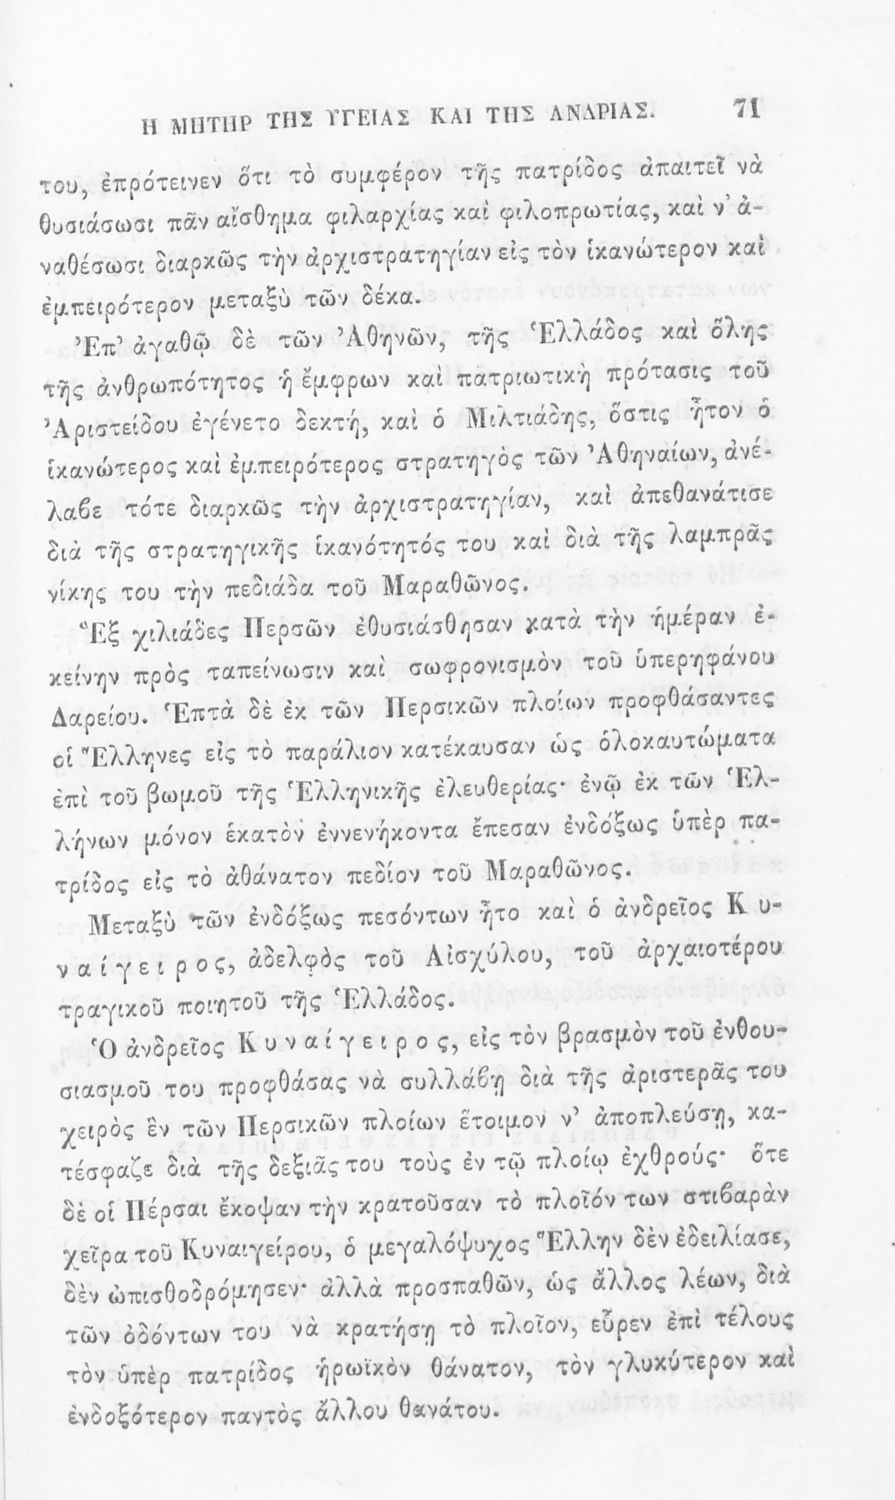 Η ΜΗΤΗΡ ΤΗΣ ΥΓΕΙΑΣ ΚΑΙ ΤΗΣ ΑΝΔΡΙΑΣ. 71
του, ἐπρότεινεν ὅτι τὸ συμφέρον τῆς πατρίδος ἀπαιτεῖ νὰ
θυσιάσωσι πᾶν αἴσθημα φιλαρχίας καὶ φιλοπρωτίας, καὶ ν’ ἀ-
ναθέσωσι διαρκῶς τὴν ἀρχιστρατηγίαν εἰς τὸν ἱκανώτερον καὶ
ἐμπειρότερον μεταξὺ τῶν δέκα.
Ἐπ’ ἀγαθῷ δὲ τῶν Ἀθηνῶν, τῆς Ἑλλάδος καὶ ὅλης
τῆς ἀνθρωπότητος ἡ ἔμφρων καὶ πατριωτικὴ πρότασις τοῦ
Ἀριστείδου ἐγένετο δεκτή, καὶ ὁ Μιλτιάδης, ὅστις ἦτον ὁ
ἱκανώτερος καὶ ἐμπειρότερος στρατηγὸς τῶν Ἀθηναίων, ἀνέ-
λαβε τότε διαρκῶς τὴν ἀρχιστρατηγίαν, καὶ ἀπεθανάτισε
διὰ τῆς στρατηγικῆς ἱκανότητός του καὶ διὰ τῆς λαμπρᾶς
νίκης του τὴν πεδιάδα τοῦ Μαραθῶνος.
Ἓξ χιλιάδες Περσῶν ἐθυσιάσθησαν κατὰ τὴν ἡμέραν ἐ-
κείνην πρὸς ταπείνωσιν καὶ σωφρονισμὸν τοῦ ὑπερηφάνου
Δαρείου. Ἑπτὰ δὲ ἐκ τῶν Περσικῶν πλοίων προφθάσαντες
οἱ Ἕλληνες εἰς τὸ παράλιον κατέκαυσαν ὡς ὁλοκαυτώματα
ἐπὶ τοῦ βωμοῦ τῆς Ἑλληνικῆς ἐλευθερίας· ἐνῷ ἐκ τῶν Ἑλ-
λήνων μόνον ἑκατὸν ἐννενήκοντα ἔπεσαν ἐνδόξως ὑπὲρ πα-
τρίδος εἰς τὸ ἀθάνατον πεδίον τοῦ Μαραθῶνος.
Μεταξὺ τῶν ἐνδόξως πεσόντων ἦτο καὶ ὁ ἀνδρεῖος Κ υ-
ν α ί γ ε ι ρ ο ς, ἀδελφὸς τοῦ Αἰσχύλου, τοῦ ἀρχαιοτέρου
τραγικοῦ ποιητοῦ τῆς Ἑλλάδος.
Ὁ ἀνδρεῖος Κ υ ν α ί γ ε ι ρ ο ς, εἰς τὸν βρασμὸν τοῦ ἐνθου-
σιασμοῦ του προφθάσας νὰ συλλάβῃ διὰ τῆς ἀριστερᾶς του
χειρὸς ἓν τῶν Περσικῶν πλοίων ἕτοιμον ν’ ἀποπλεύσῃ, κα-
τέσφαζε διὰ τῆς δεξιᾶς του τοὺς ἐν τῷ πλοίῳ ἐχθρούς· ὅτε
δὲ οἱ Πέρσαι ἔκοψαν τὴν κρατοῦσαν τὸ πλοῖόν των στιβαρὰν
χεῖρα τοῦ Κυναιγείρου, ὁ μεγαλόψυχος Ἕλλην δὲν ἐδειλίασε,
δὲν ὠπισθοδρόμησεν· ἀλλὰ προσπαθῶν, ὡς ἄλλος λέων, διὰ
τῶν ὀδόντων του νὰ κρατήσῃ τὸ πλοῖον, εὗρεν ἐπὶ τέλους
τὸν ὑπὲρ πατρίδος ἡρωϊκὸν θάνατον, τὸν γλυκύτερον καὶ
ἐνδοξότερον παντὸς ἄλλου θανάτου.